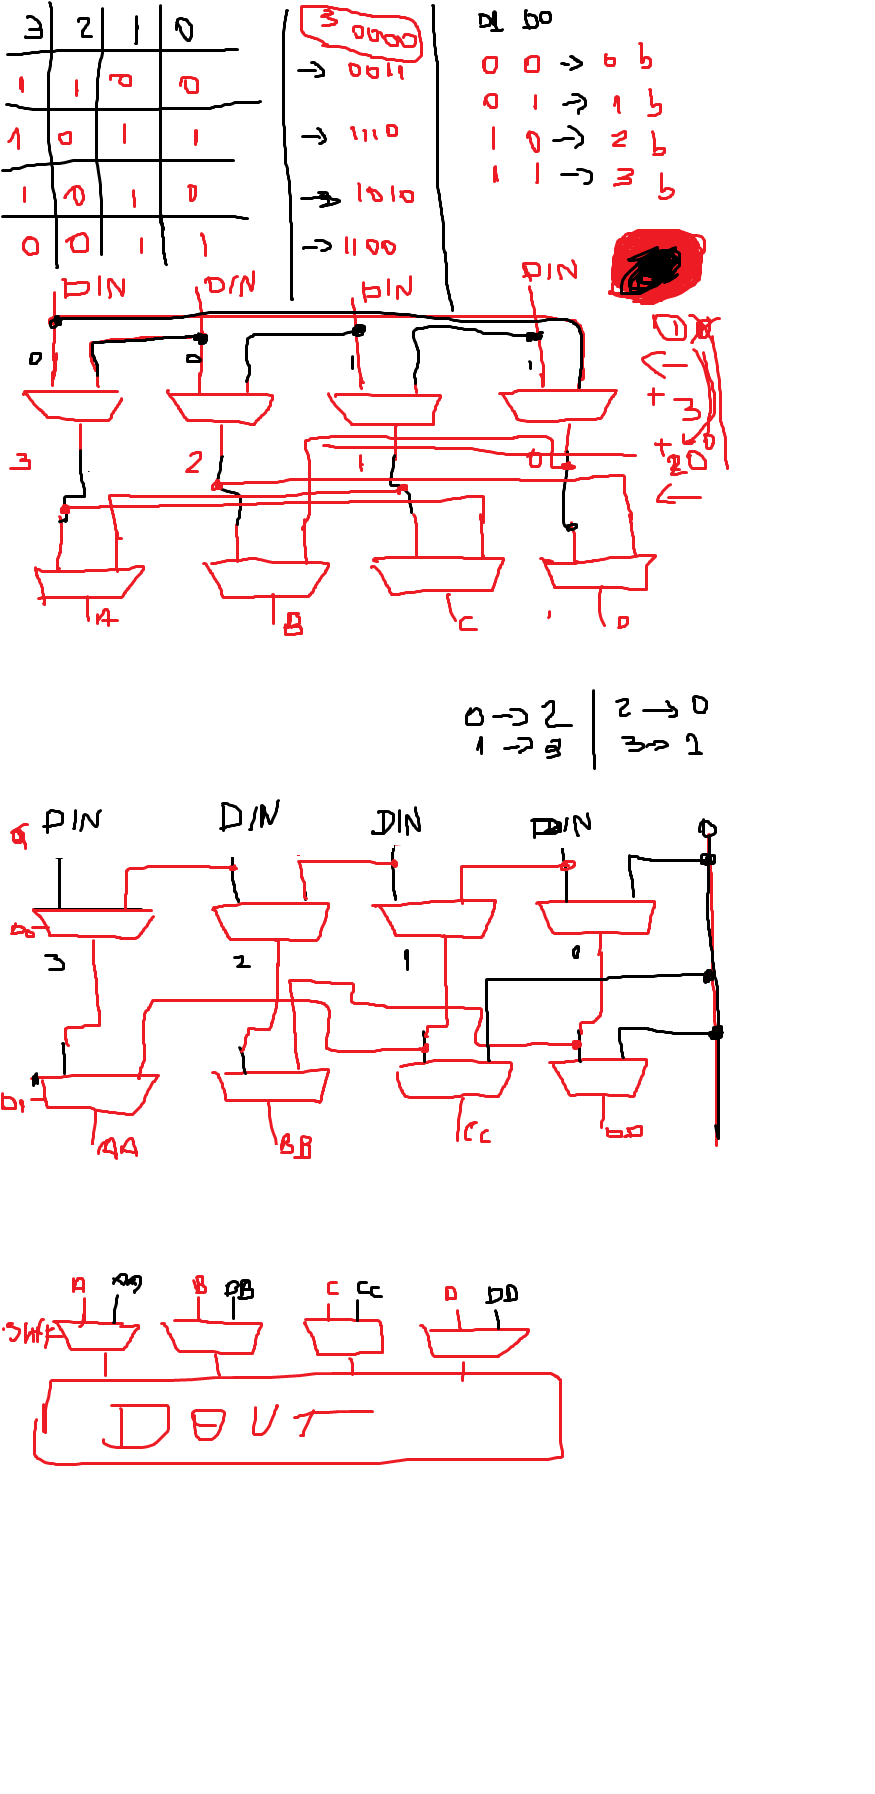 3 2 1 0
1 1 0 0
1 0 1 1
1 0 1 0
0 0 1 1
3 0000
→ 0011
→ 1110
→ 1010
→ 1100
D1 D0
0 0 → 0 b
0 1 → 1 b
1 0 → 2 b
1 1 → 3 b
DIN DIN DIN DIN
0 0 1 1
3 2 1 0
←
+ 3
+
20
←
A B C D
0 → 2 | 2 → 0
1 → 3 | 3 → 1
DIN DIN DIN DIN 0
D0
3 2 1 0
D1
AA BB CC DD
A AA B BB C CC D DD
DOUT